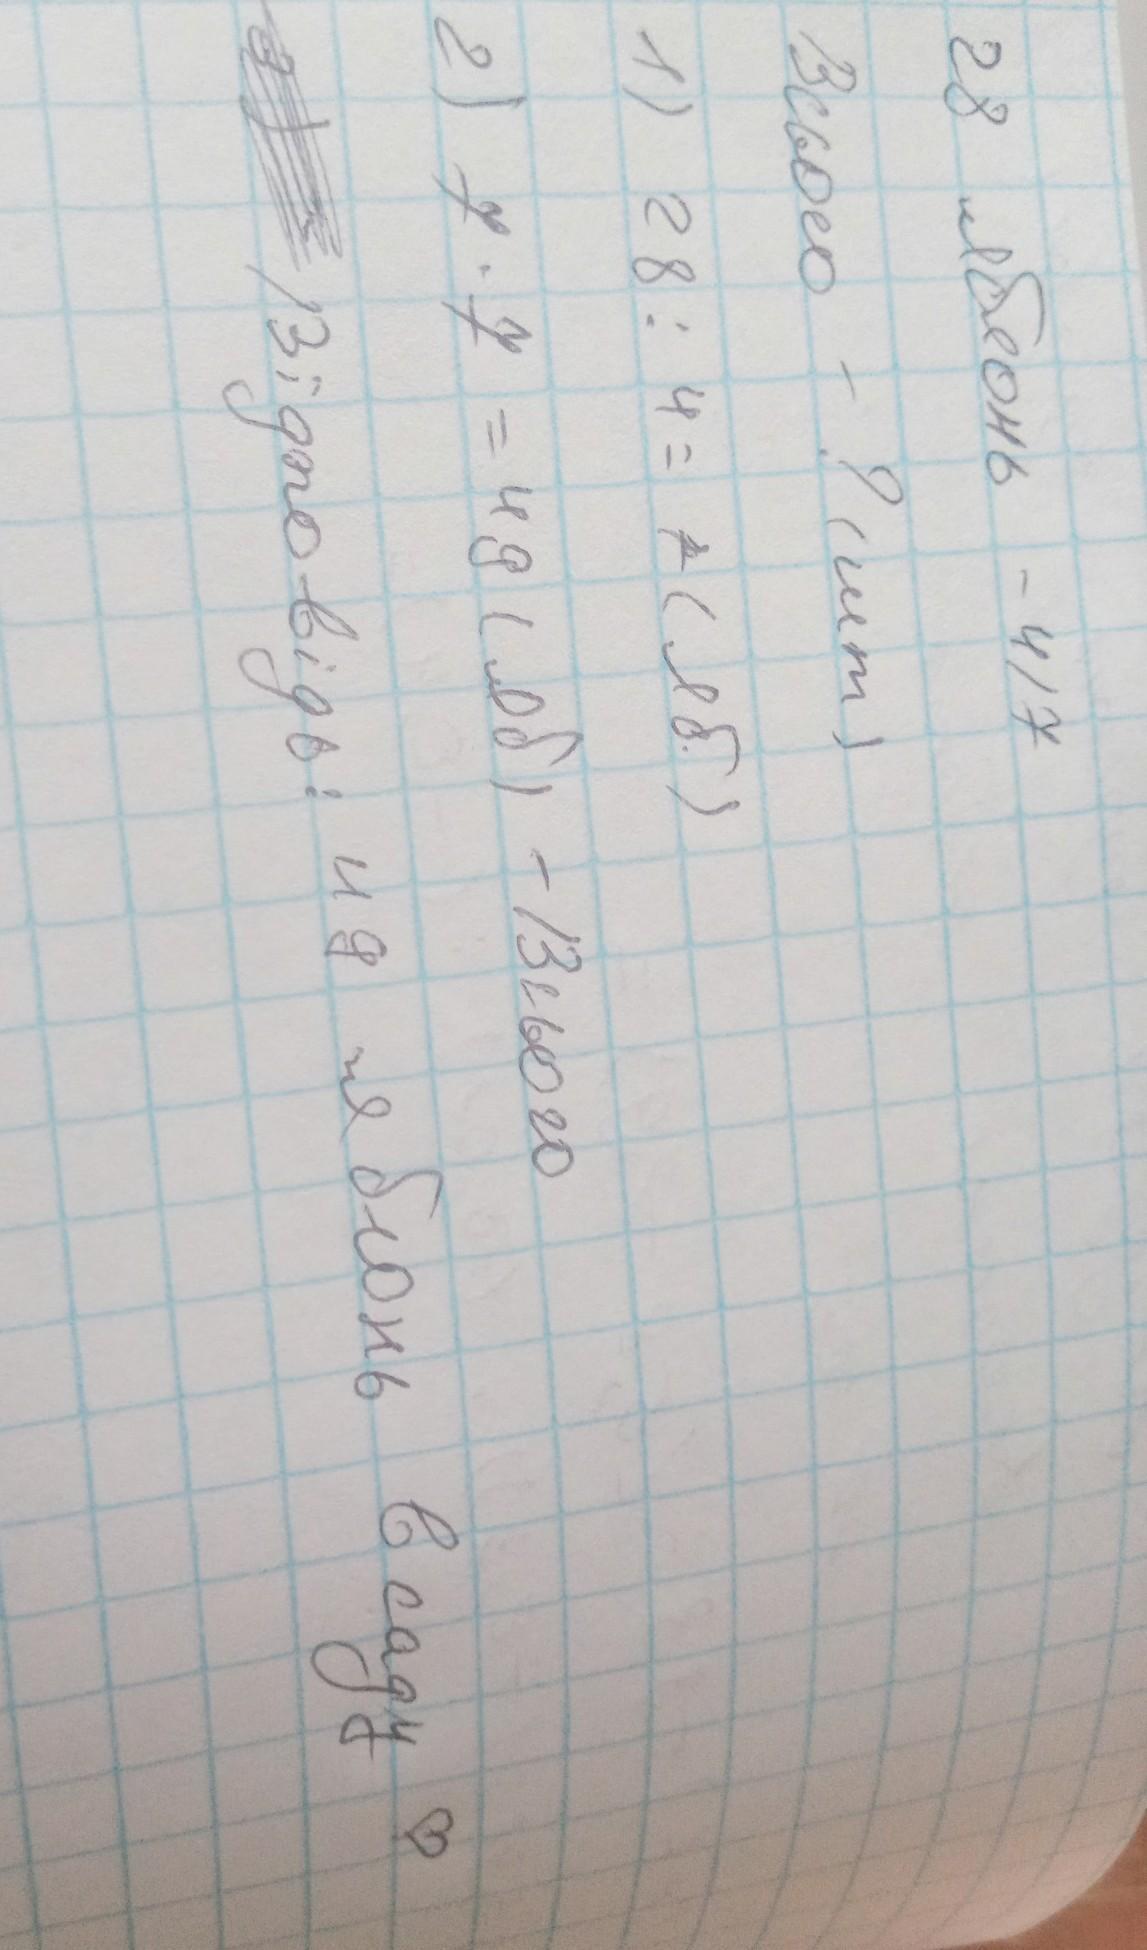 28 яблонь - 4/7
Всього - ? (шт)
1) 28 : 4 = 7 (яб.)
2) 7 · 7 = 49 (яб) - Всього
Відповідь: 49 яблонь в саду ♡